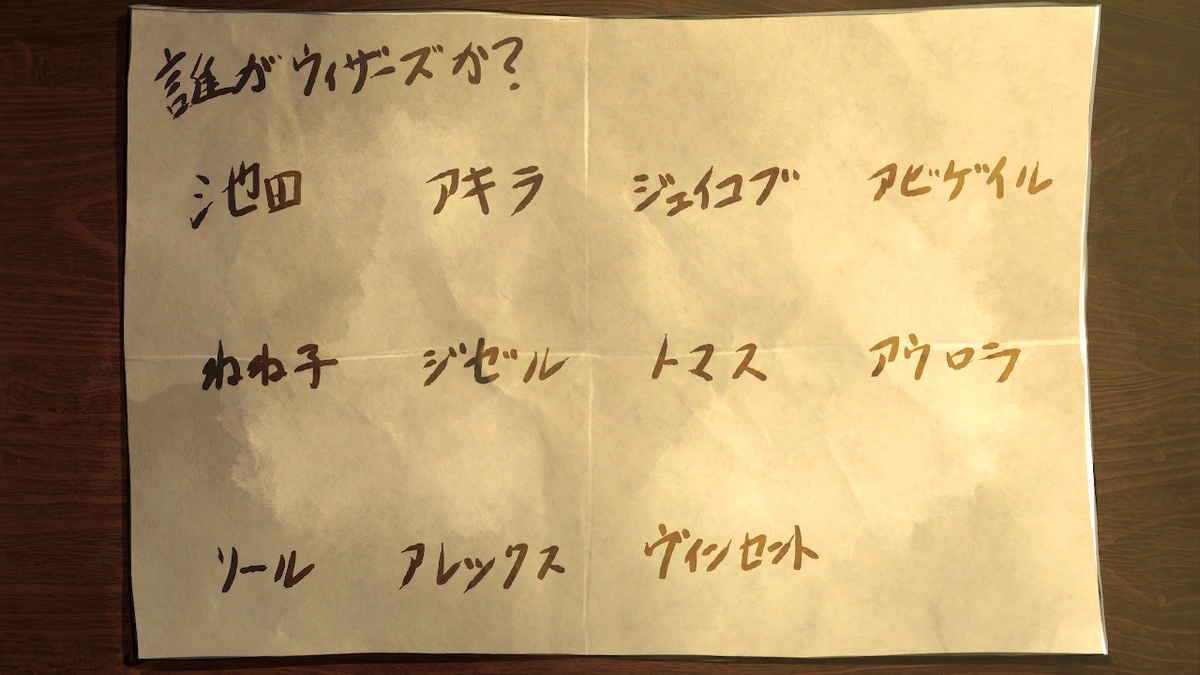 誰がウィザーズか?
池田 アキラ ジェイコブ アビゲイル
ねね子 ジゼル トマス アウロラ
リール アレックス ヴィンセント